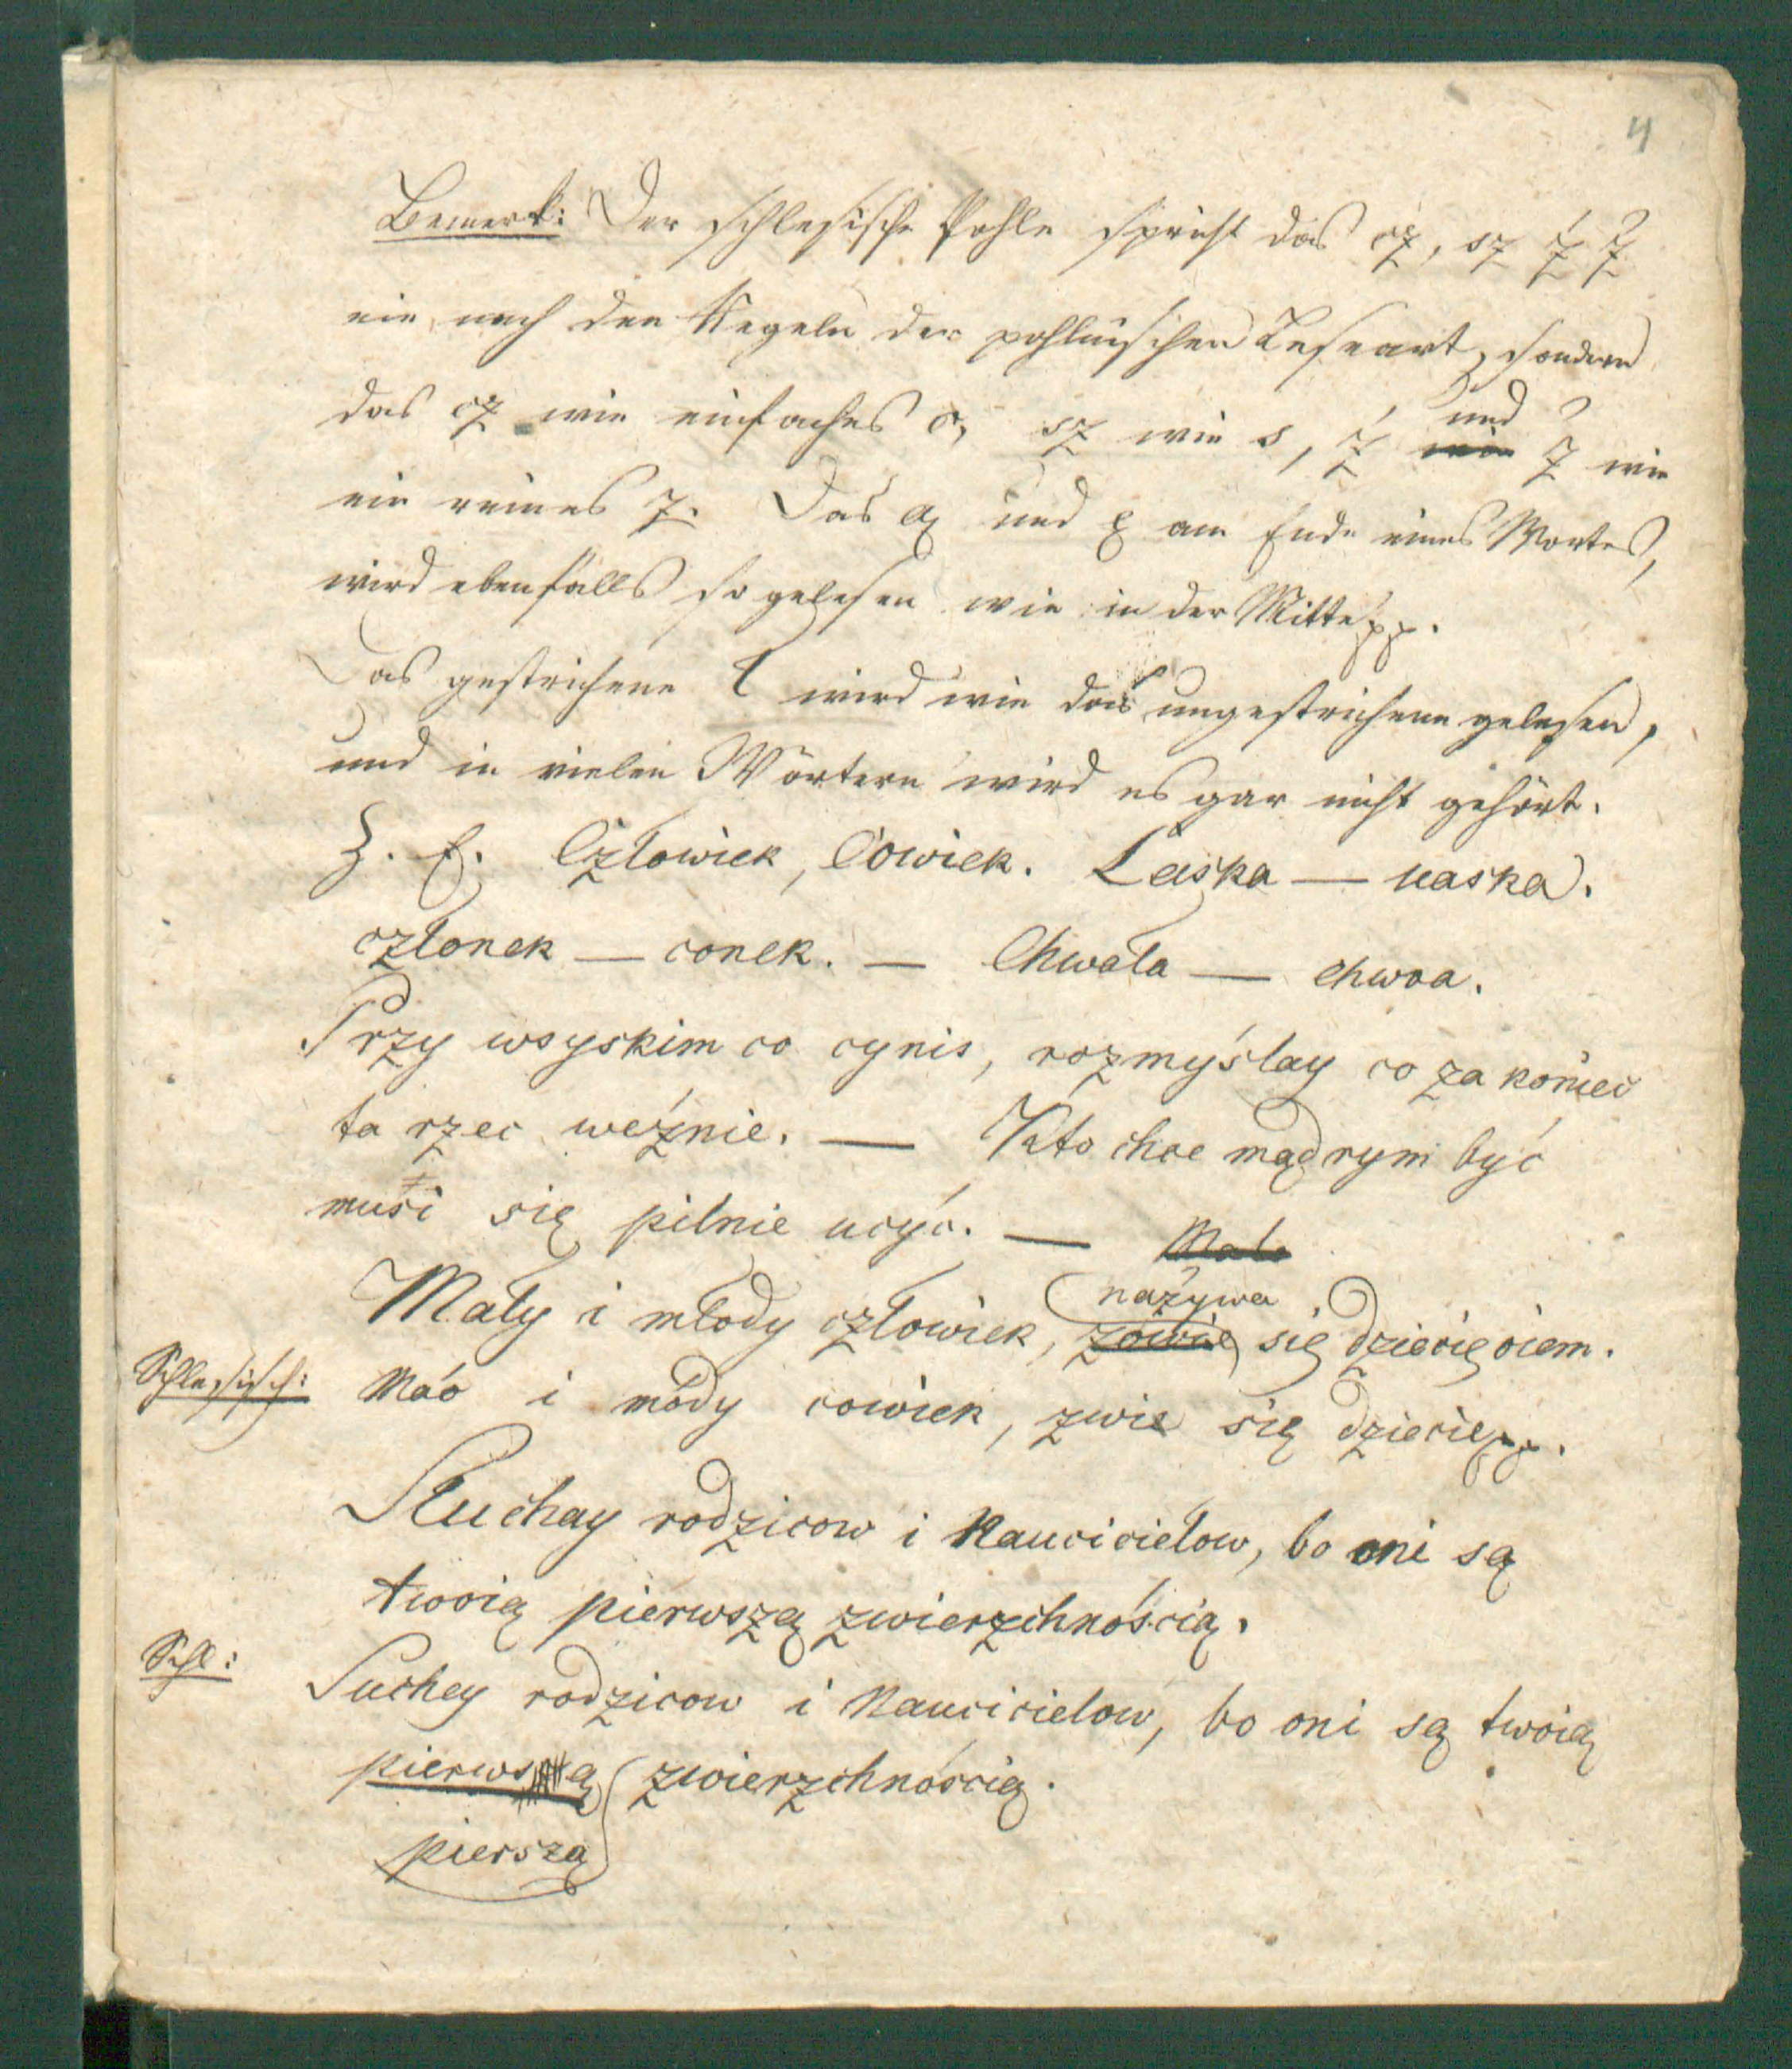 4
Bemerk: Der schlesische Pohle spricht das cz, sz ź ż
nie nach den Regeln der pohlnischen Leseart, sondern
das cz wie einfaches c, sz wie s, ź und ż wie
ein reines z. Das ą und ę am Ende eines Wortes,
wird ebenfalls so gelesen wie in der Mitte pp.
Das gestrichene ł wird wie das ungestrichene gelesen,
und in vielen Wörtern wird es gar nicht gehört.
Z. E. Człowiek, Cowiek. Łaska — uaska.
członek — conek. — Chwała — chwoa.
Przy wsyskim co cynis, rozmyślay co za koniec
ta rzec weźnie. — Kto chce mądrym być
musi się pilnie ucyć. — Mało
nazywa
Mały i młody człowiek, zowie się dziecięciem.
Schlesisch: Máo i módy cowiek, zwie się dziecie pp.
Słuchay rodzicow i Naucicielow, bo oni są
twoią pierwszą zwierzchnością.
Schl: Suchey rodzicow i Naucicielow, bo oni są twoią
pierwszą zwierzchnością.
pierszą